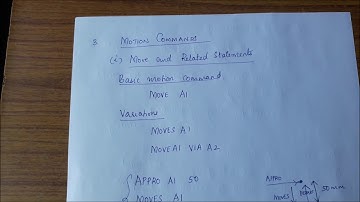 3 MOTION COMMANDS
(i) Move and Related Statements
Basic motion command
MOVE A1
Variations
MOVES A1
MOVE A1 VIA A2
APPRO A1 50
MOVES A1
APPRO
MOVES
50 mm